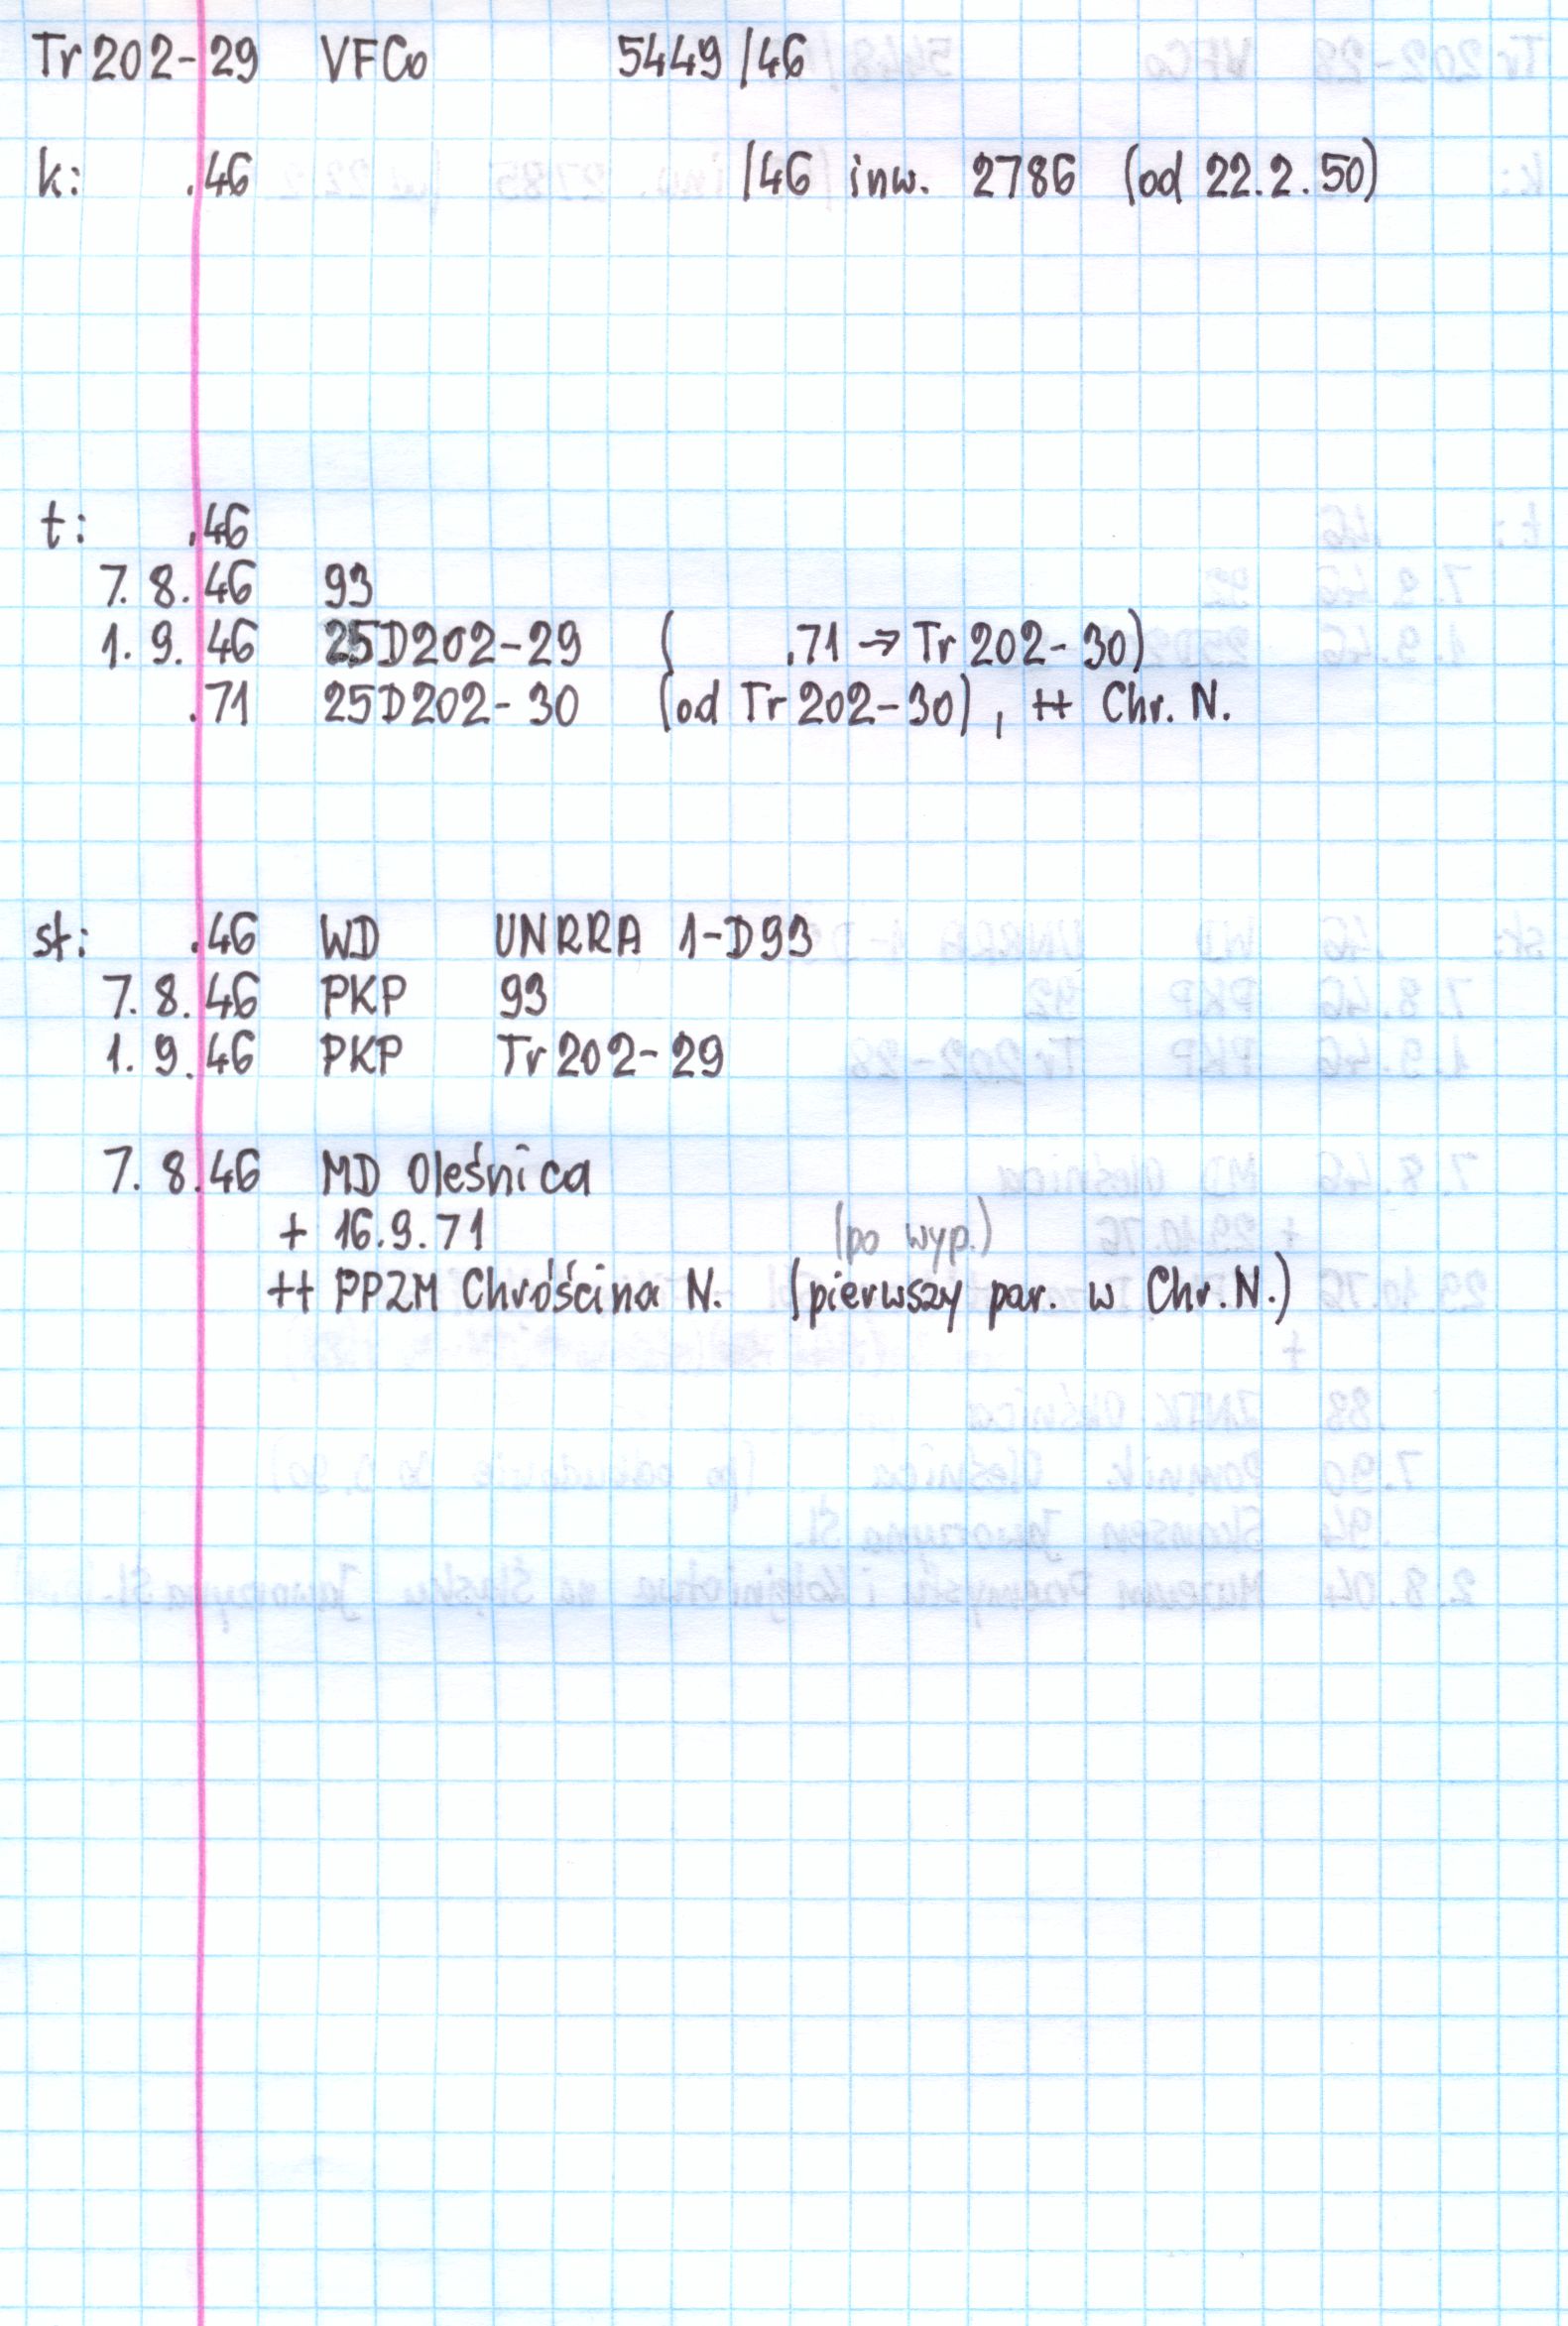 Tr202-29 VFCo 5449/46
k: .46 /46 inw. 2786 (od 22.2.50)
t: .46
7.8.46 93
1.9.46 25D202-29 ( .71 → Tr202-30)
.71 25D202-30 (od Tr202-30), ++ Chr. N.
st: .46 WD UNRRA 1-D93
7.8.46 PKP 93
1.9.46 PKP Tr202-29
7.8.46 MD Oleśnica
+ 16.9.71 (po wyp.)
++ PPZM Chróścina N. (pierwszy par. w Chr.N.)